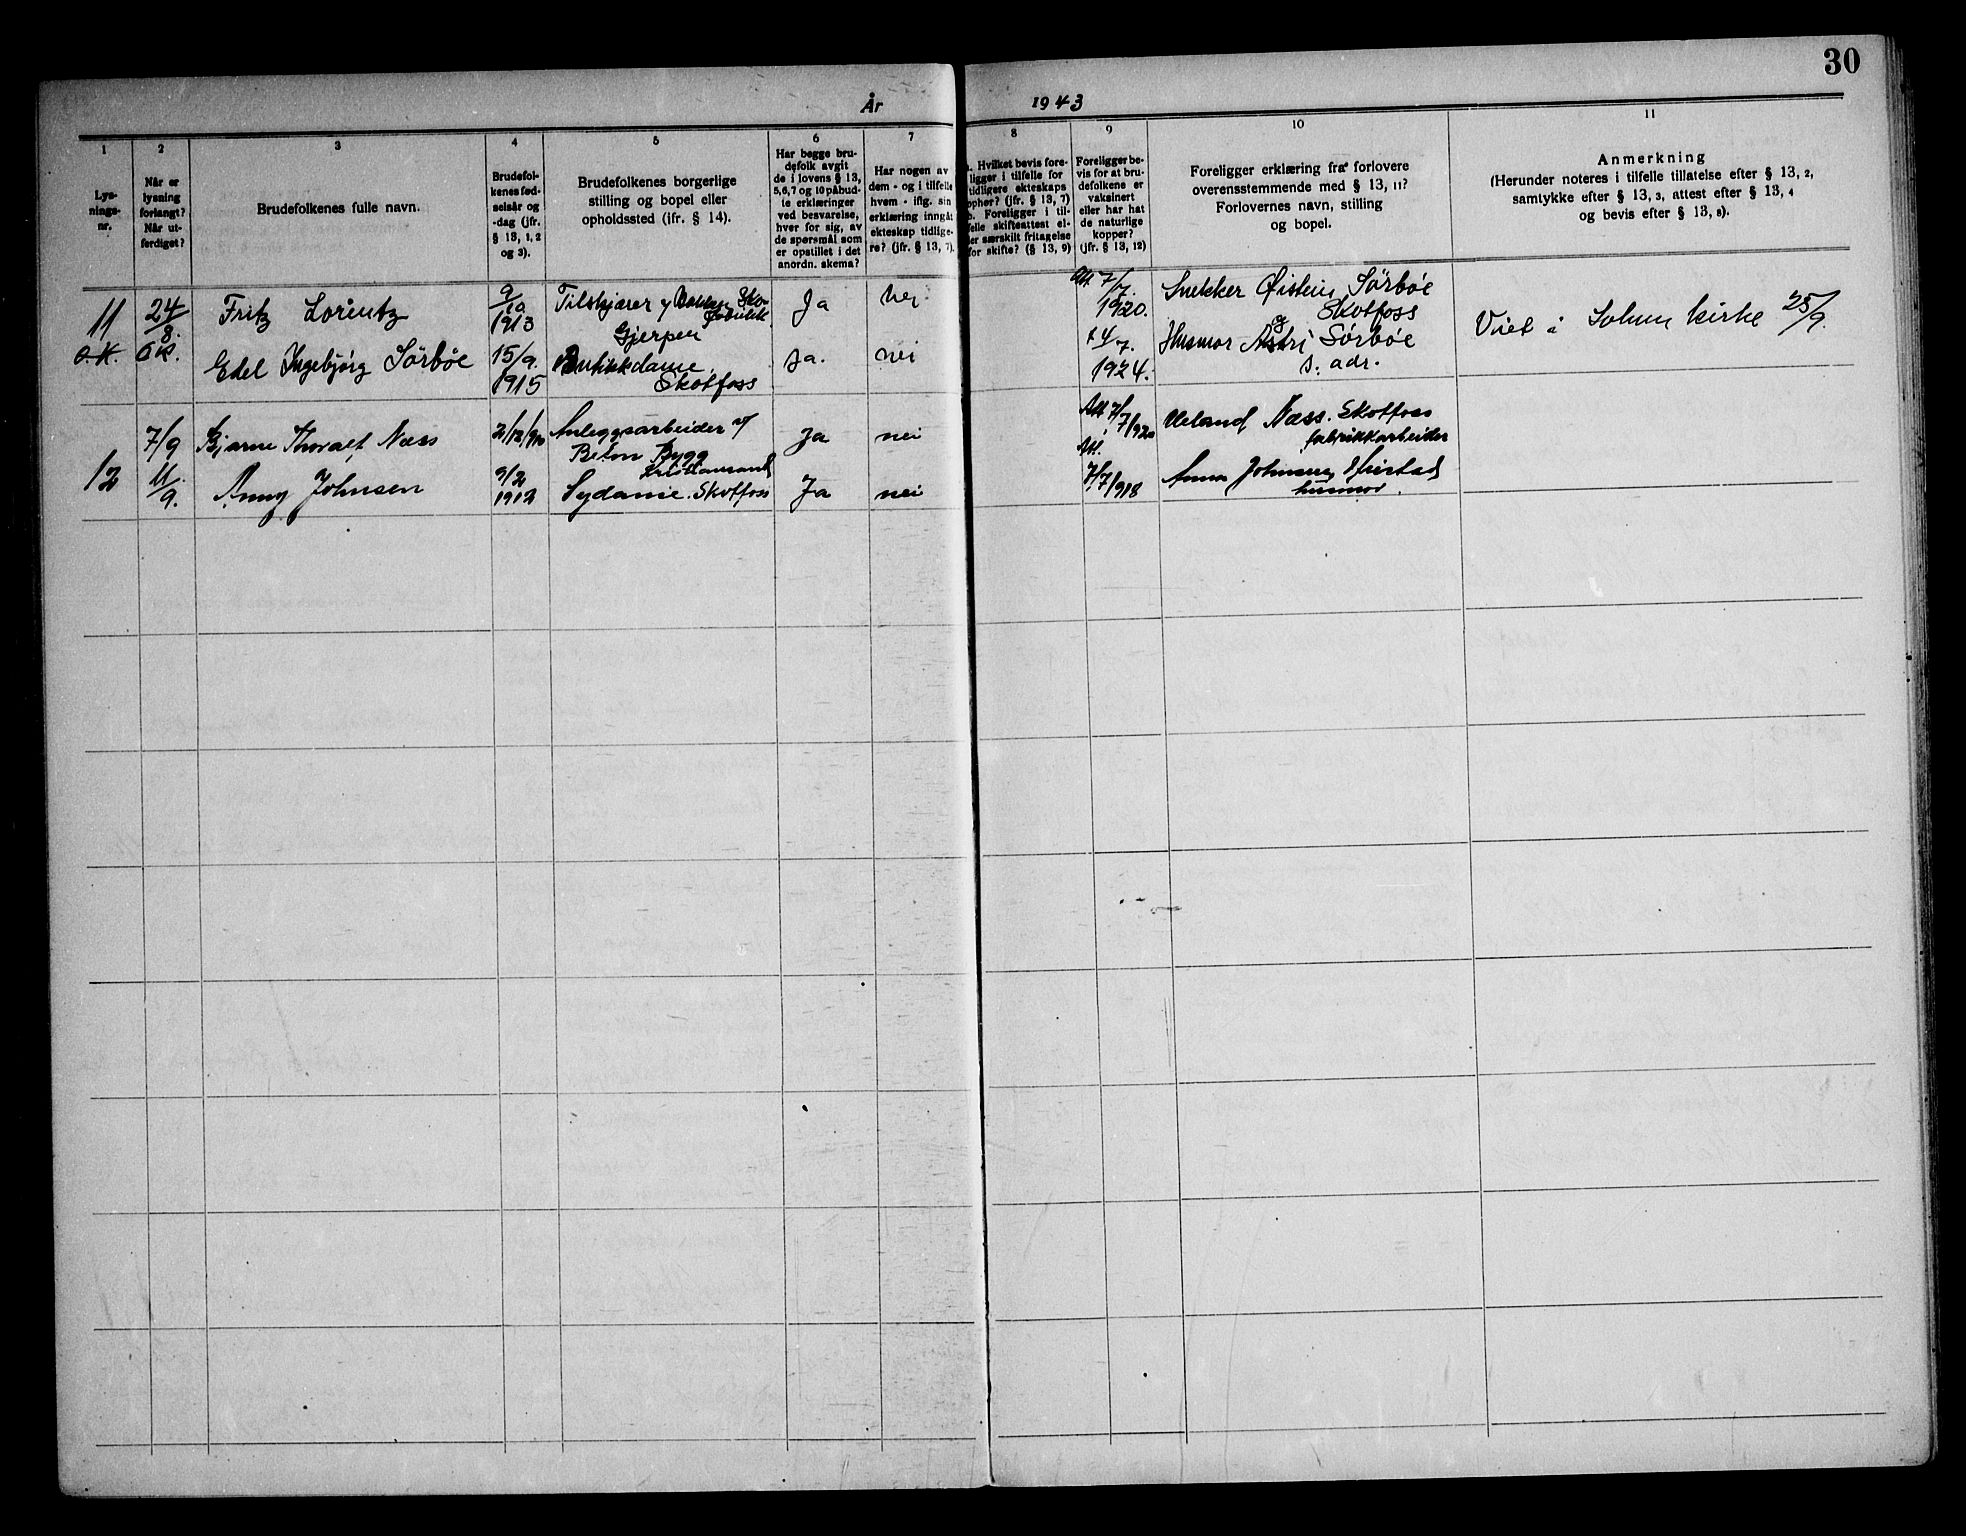 30
År 1943
1
2
3
4
5
6
7
8
9
10
11
Lys-
nings-
nr.
Når er
lysning
forlangt?
Når ut-
ferdiget?
Brudefolkenes fulle navn.
Brudefol-
kenes fød-
selsår og
-dag (jfr.
§ 13, 1, 2
og 3).
Brudefolkenes borgerlige
stilling og bopel eller
opholdssted (ifr. § 14).
Har begge bru-
defolk avgit
de i lovens § 13,
5,6,7 og 10 påbud-
te erklæringer
ved besvarelse,
hver for sig, av
de spørsmål som
er opstillet i det
anordn. skema?
Har nogen av
dem - og i tilfelle
hvem - ifig. sin
erklæring inngåt
ekteskap tidlige-
re? (jfr. § 13, 7).
a. Hvilket bevis fore-
ligger i tilfelle for
tidligere ekteskaps
ophør? (jfr. § 13, 7)
b. Foreligger i til-
felle skifteattest el-
ler særskilt fritagelse
for skifte? (§ 13, 9)
Foreligger be-
vis for at bru-
defolkene er
vaksinert
eller har hat
de naturlige
kopper?
(jfr. § 13, 12)
Foreligger erklæring fra forlovere
overensstemmende med § 13, 11?
Forlovernes navn, stilling
og bopel.
Anmerkning
(Herunder noteres i tilfelle tillatelse efter § 13, 2,
samtykke efter § 13, 3, attest efter § 13, 4
og bevis efter § 13, 8).
11
o.k.
24/8.
o.k.
Fritz Lorentz
9/10
1913
Tilskjærer v/
Gjerpen
Ja
nei
Att. 7/7.
1920.
Snekker Øistein Sørbøe
Skotfoss
og
Viet i Solum kirke 25/9.
Edel Ingebjørg Sørbøe
15/9.
1915
Butikkdame,
Skotfoss
Ja.
nei
14/7.
1924.
Husmor Astri Sørbøe
s. adr.
12
7/9
11/9.
Bjarne Thoralf Næss
2/12/910
Anleggsarbeider v/
Beton Bygg
Kristiansand
Ja
nei
Att. 7/7/920
Næss. Skotfoss
fabrikkarbeider
Anny Johnsen
9/2
1912
Sydame. Skotfoss
Ja
nei
Att.
7/7/918
Anna Johnsen
husmor.